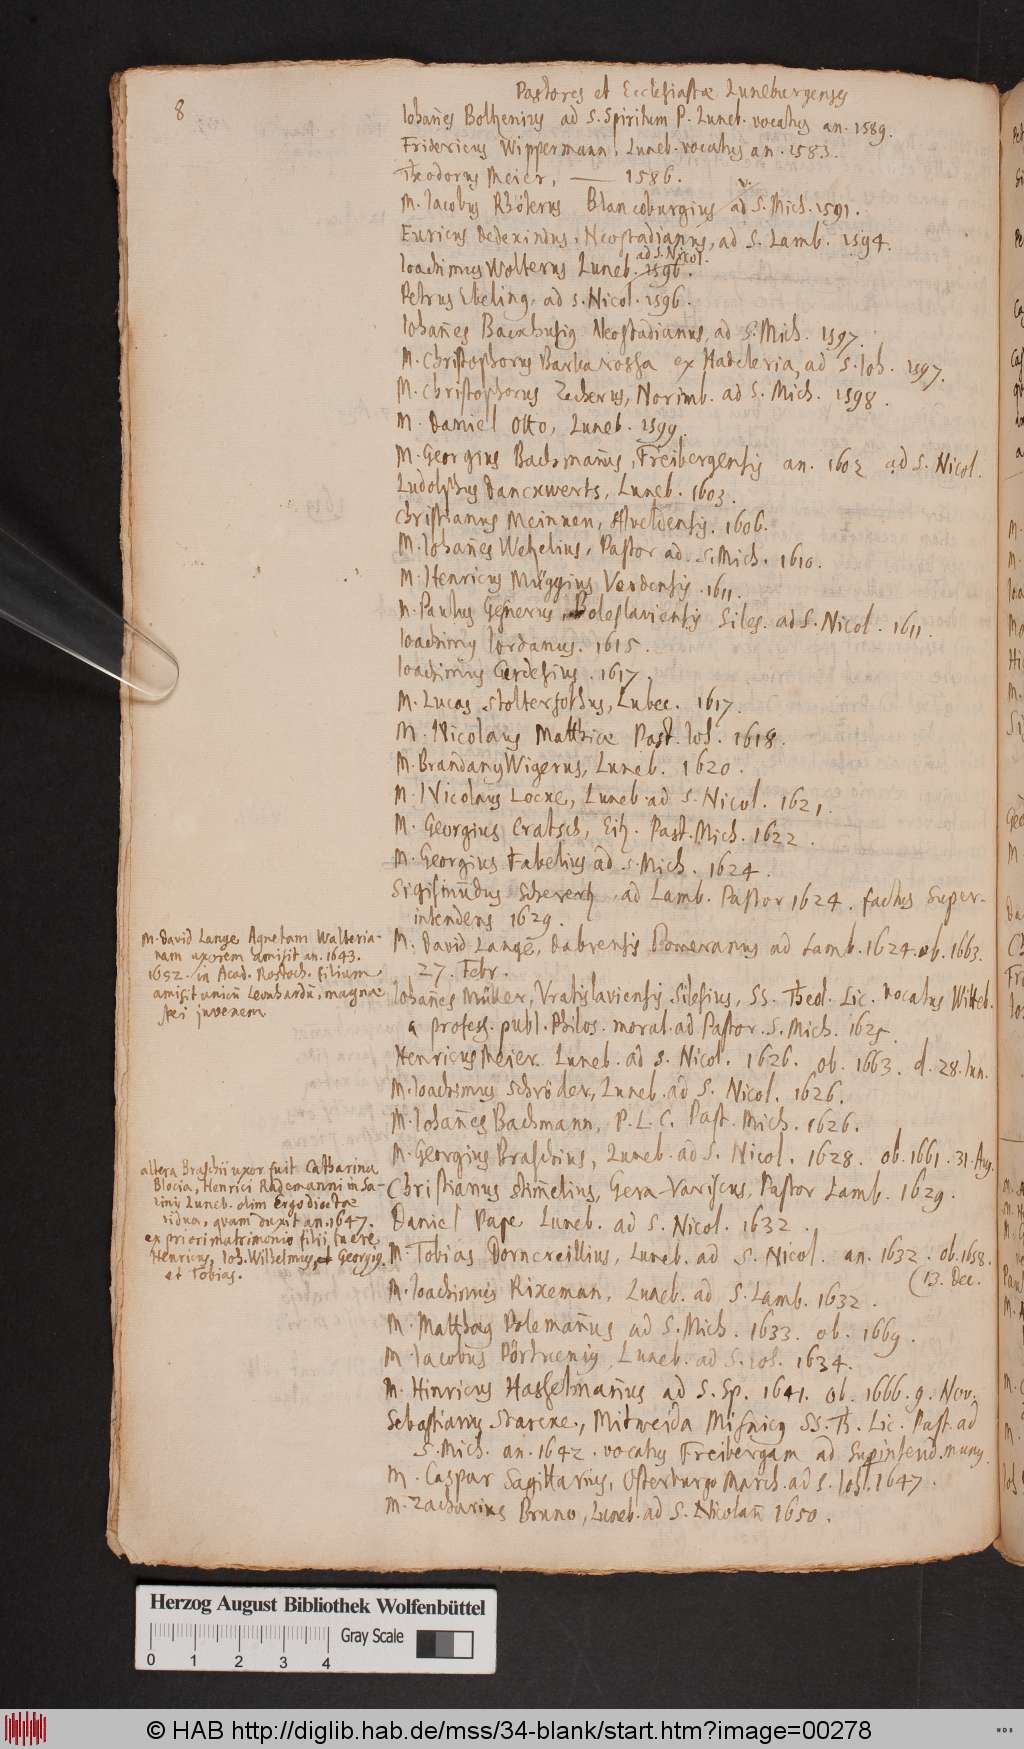 8
Pastores et Ecclesiastæ Luneburgenses
Iohañes Bothenius ad S. Spiritum P. Luneb. vocatus an. 1589.
Fridericus Wippermann, Luneb. vocatus an. 1583.
Theodorus Meier, — 1586.
M. Iacobus Rhöterus Blancoburgius ad S. Mich. 1591.
Euricus Dedekindus, Neostadianus, ad S. Lamb. 1594.
Ioachimus Wolterus Luneb. ad S. Nicol. 1596.
Petrus Ebeling, ad S. Nicol. 1596.
Iohañes Backhusig Neostadianus, ad S. Mich. 1597.
M. Christophorus Barbarossa ex Hadeleria, ad S. Ioh. 1597.
M. Christophorus Zecherus, Norimb. ad S. Mich. 1598.
M. Daniel Otto, Luneb. 1599.
M. Georgius Bachmañus, Freibergensis an. 1602 ad S. Nicol.
Ludolphus Danckwerts, Luneb. 1603.
Christianus Meinken, Alveldensis. 1606.
M. Iohañes Wetzelius, Pastor ad S. Mich. 1610.
M. Henricus Müggius Verdensis. 1611.
M. Paulus Gesnerus, Boleslaviensis Siles. ad S. Nicol. 1611.
Ioachimus Iordanus. 1615.
Ioachimus Gerdesius. 1617.
M. Lucas Stolterfothus, Lubec. 1617.
M. Nicolaus Matthiæ Past. Ioh. 1618.
M. Brandanus Wigerus, Luneb. 1620.
M. Nicolaus Locke, Luneb. ad S. Nicol. 1621.
M. Georgius Cratsch, Past. Mich. 1622.
M. Georgius Fabelius ad S. Mich. 1624.
Sigismũdus Scherertz, ad Lamb. Pastor 1624. factus Super-
intendens 1629.
M. David Lange, Dabrensis Pomeranus ad Lamb. 1624. ob. 1663.
27. Febr.
M. David Lange Agnetam Walteria-
nam uxorem amisit an. 1643.
1652. in Acad. Rostoch. filium
amisit unicũ Leonhardũ, magnæ
spei juvenem
Iohañes Müller, Vratislaviensis Silesius, SS. Theol. Lic. vocatus Witteb.
a profess. publ. Philos. moral. ad Pastor. S. Mich. 1625.
Henricus Meier Luneb. ad S. Nicol. 1626. ob. 1663. d. 28. Iun.
M. Ioachimus Schröder, Luneb. ad S. Nicol. 1626.
M. Iohañes Bachmann, P. L. C. Past. Mich. 1626.
M. Georgius Braschius, Luneb. ad S. Nicol. 1628. ob. 1661. 31. Aug.
altera Braschii uxor fuit Catharina
Blocia, Henrici Rademanni in Sa-
linis Luneb. olim Ergodioctæ
vidua, quam duxit an. 1647.
ex priori matrimonio filii fuere,
Henricus, Ioh. Wilhelmus, et Georgiꝰ.
et Tobias.
Christianus Stim̃elius, Gera-Variscus, Pastor Lamb. 1629.
Daniel Pape Luneb. ad S. Nicol. 1632.
M. Tobias Dorncreillius, Luneb. ad S. Nicol. an. 1632. ob. 1658.
(13. Dec.
M. Ioachimus Rixeman, Luneb. ad S. Lamb. 1632.
M. Matthæus Polemañus ad S. Mich. 1633. ob. 1669.
M. Iacobus Luneb. ad S. Ioh. 1634.
M. Hinricus Hasselmañus ad S. Sp. 1641. ob. 1666. 9. Nov.
Sebastianus Starcke, Mitweida Misnicus SS. Th. Lic. Past. ad
S. Mich. an. 1642. vocatus Freibergam ad Supintend. munus.
M. Caspar Sagittarius, Osterburgo March. ad S. Ioh. 1647.
M. Zacharias Bruno, Luneb. ad S. Nicolaũ 1650.
Herzog August Bibliothek Wolfenbüttel
Gray Scale
0 1 2 3 4
© HAB http://diglib.hab.de/mss/34-blank/start.htm?image=00278